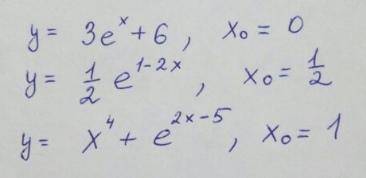 y = 3eˣ + 6, x₀ = 0
y = ½ e¹⁻²ˣ, x₀ = ½
y = x⁴ + e²ˣ⁻⁵, x₀ = 1